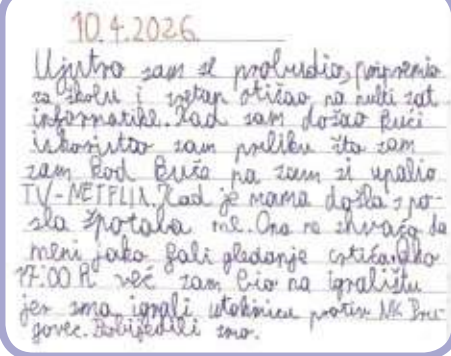 10.4.2026.
Ujutro sam se probudio, pripremio
za školu i sretan otišao na nulti sat
informatike. Kad sam došao kući
iskoristio sam priliku što sam
sam kod kuće pa sam si upalio
TV-NETFLIX. Kad je mama došla s po-
sla špotala me. Ona ne shvaća da
meni jako fali gledanje crtića. Oko
17:00 h već sam bio na igralištu
jer smo igrali utakmicu protiv NK Bru-
govec. Pobijedili smo.